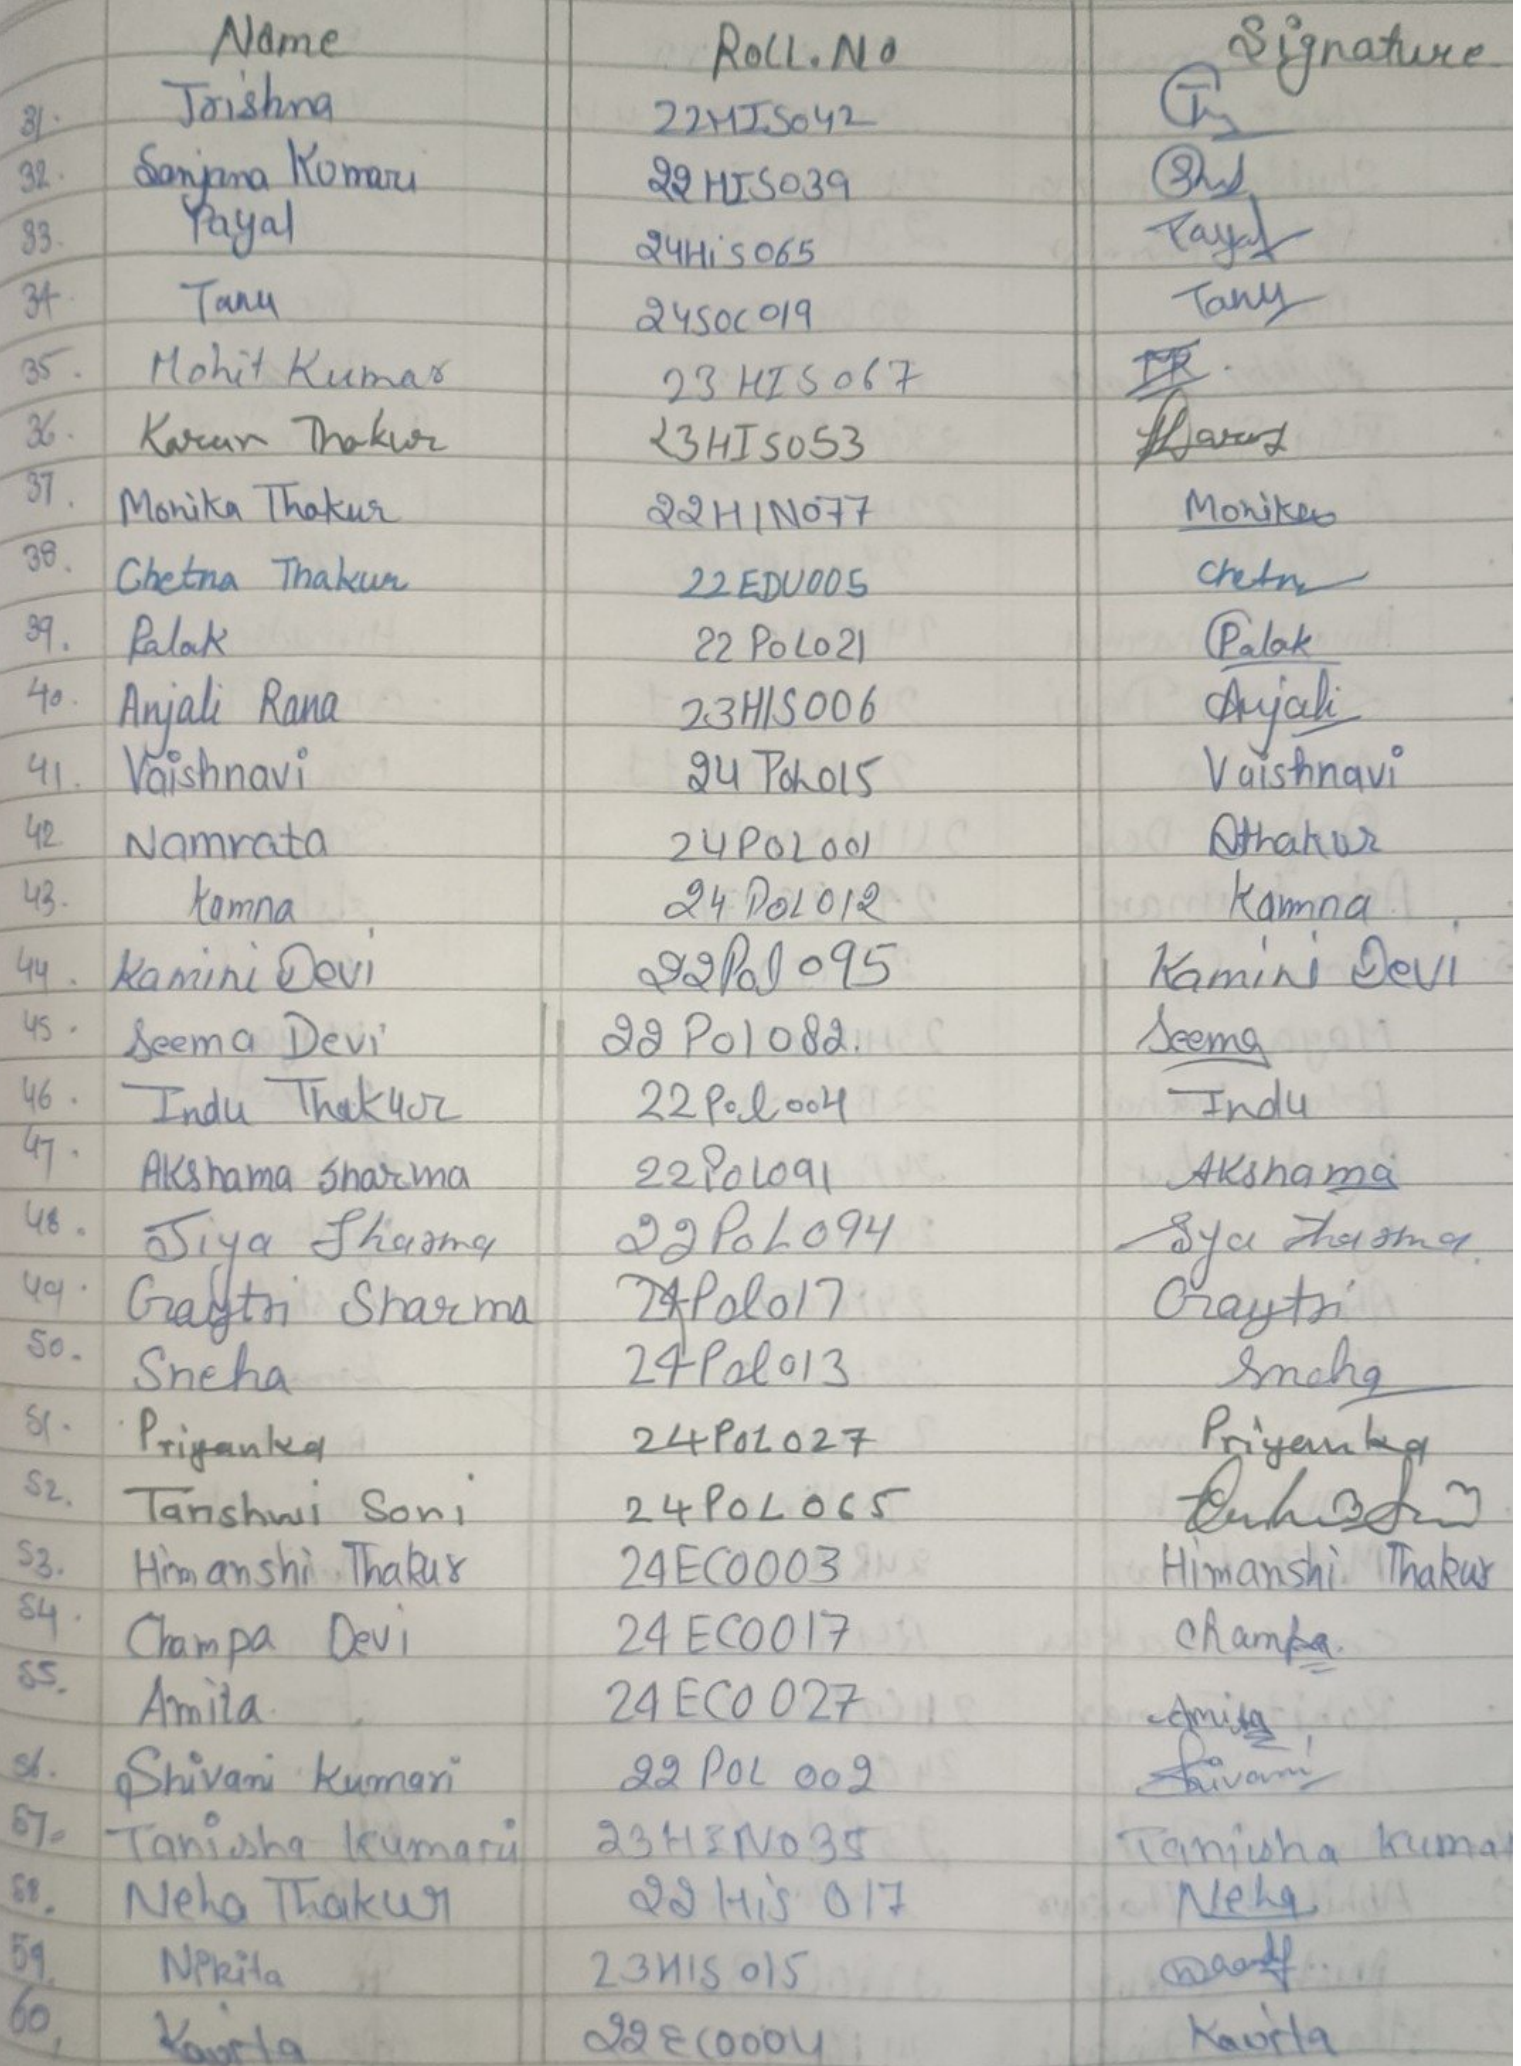 Name Roll.No Signature
31. Trishna 22HIS042
32. Sanjana Kumari 22HIS039
33. Payal 24HiS065 Payal
34. Tanu 24SOC019 Tanu
35. Mohit Kumar 23HIS067
36. Karun Thakur 23HIS053
37. Monika Thakur 22HIN077 Monika
38. Chetna Thakur 22EDU005 Chetna
39. Palak 22POL021 Palak
40. Anjali Rana 23HIS006 Anjali
41. Vaishnavi 24POL015 Vaishnavi
42. Namrata 24POL001 Thakur
43. Kamna 24POL012 Kamna
44. Kamini Devi 22Pol095 Kamini Devi
45. Seema Devi 22Pol082. Seema
46. Indu Thakur 22Pol004 Indu
47. Akshama Sharma 22POL091 Akshama
48. Jiya Sharma 22POL094 Jiya Sharma
49. Gaytri Sharma 24Pol017 Gaytri
50. Sneha 24Pol013 Sneha
51. Priyanka 24POL027 Priyanka
52. Tanshwi Soni 24POL065
53. Himanshi Thakur 24ECO003 Himanshi Thakur
54. Champa Devi 24ECO017 Champa.
55. Amita 24ECO027 Amita
56. Shivani Kumari 22POL002 Shivani
57. Tanisha Kumari 23HIN035 Tanisha Kumar
58. Neha Thakur 22HiS017 Neha
59. Nikita 23HIS015
60. Kavita 22ECO004 Kavita